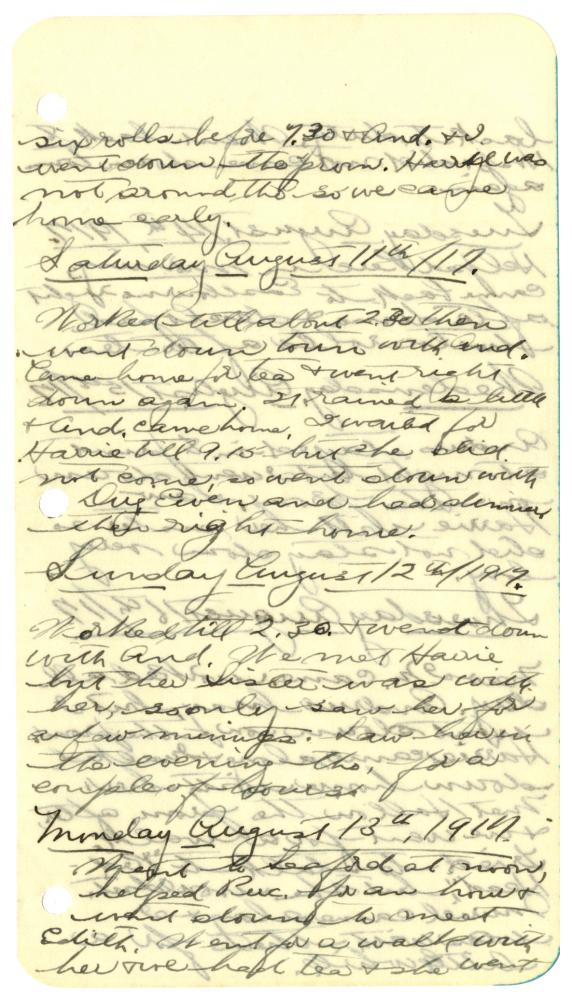 six rolls before 7.30 & And. & I
went down the prom. Harrie was
not around tho so we came
home early.
Saturday August 11th/17.
Worked till about 2.30 then
went down town with And.
Came home for tea & went right
down again. It rained a little
& And. came home, I waited for
Harrie till 9.15 but she did
not come, so went down with
Dug Ewen and had dinner
then right home.
Sunday August 12th/1917.
Worked till 2.30. & went down
with And. We met Harrie
but her sister was with
her, so only saw her for
a few minings. Saw her in
the evening tho, for a
couple of hours
Monday August 13th, 1917.
Went to Seaford at noon,
helped Buc. for an hour &
went down to meet
Edith. Went for a walk with
her & we had tea & she went